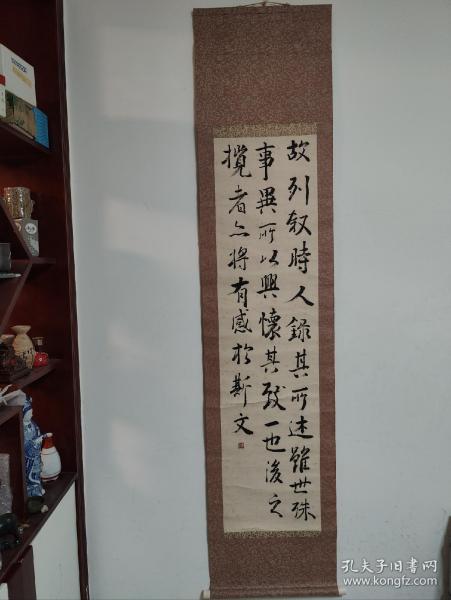 故列叙時人錄其所述雖世殊
事異所以興懷其致一也後之
攬者亦將有感於斯文
孔夫子旧书网
www.kongfz.com